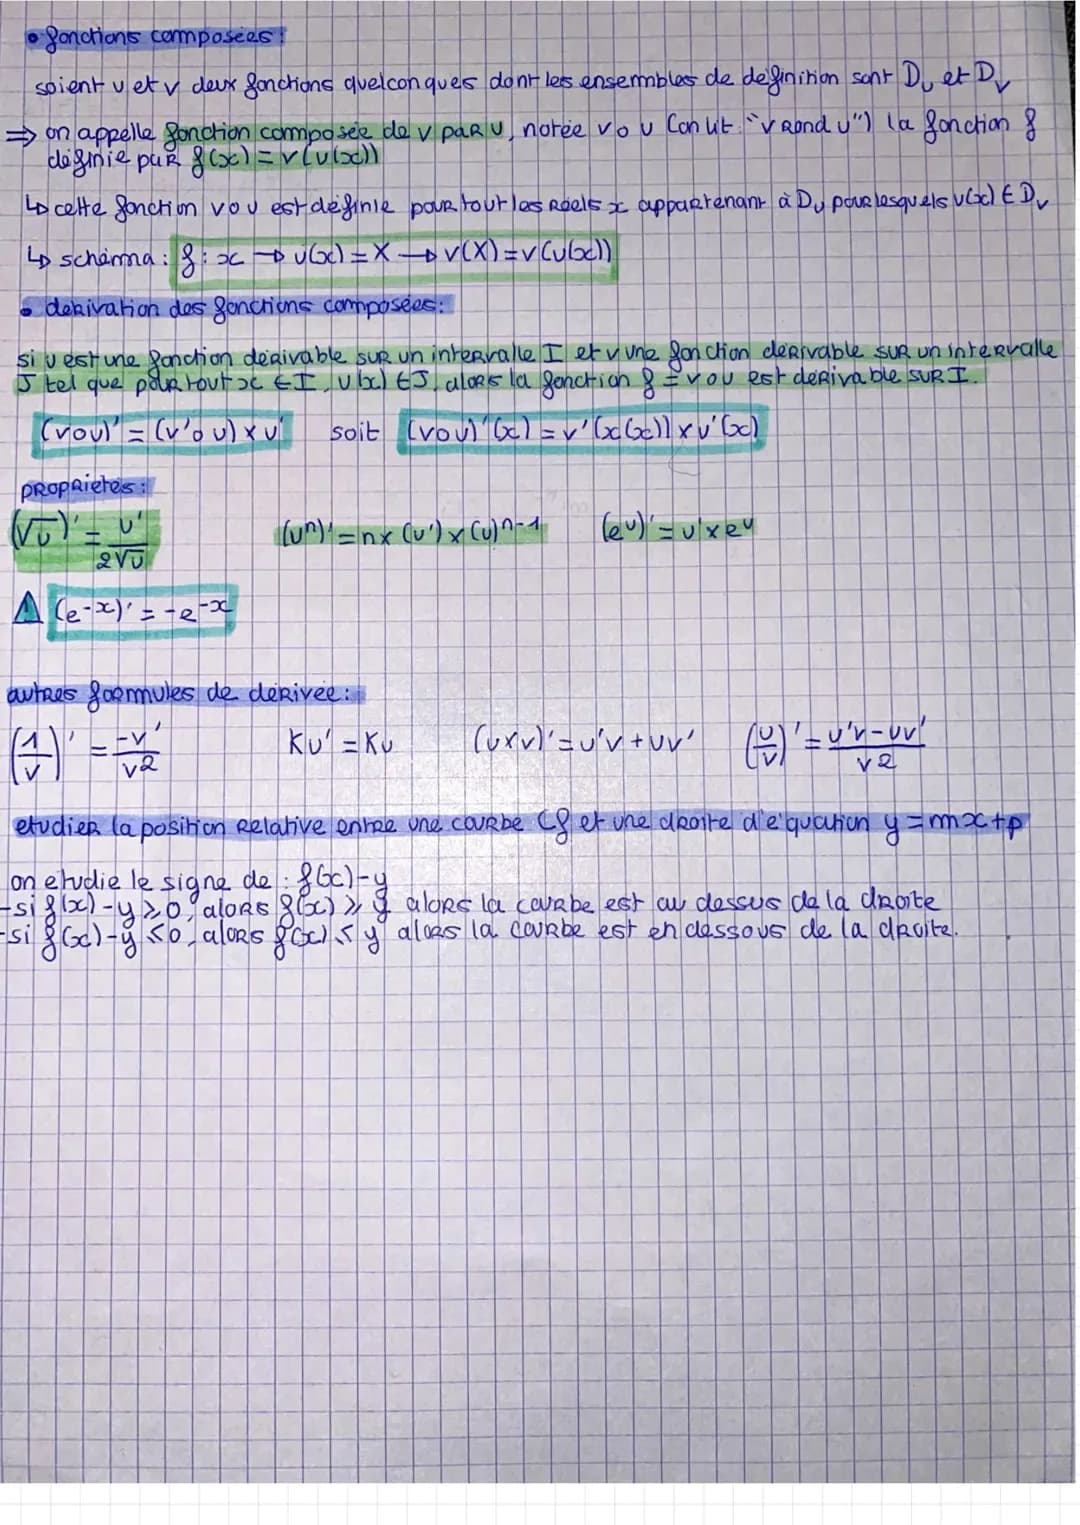 • fonctions composées :
soient u et v deux fonctions quelconques dont les ensembles de definition sont Du et Dv
⇒ on appelle fonction composée de v par u, notée v o u (on lit "v Rond u") la fonction f
définie par f(x) = v(u(x))
↳ cette fonction v o u est définie pour tout les Réels x appartenant à Du pour lesquels u(x) ∈ Dv
↳ schéma : f : x → u(x) = X → v(X) = v(u(x))
• derivation des fonctions composées :
si u est une fonction dérivable sur un intervalle I et v une fonction derivable sur un intervalle
J tel que pour tout x ∈ I, u(x) ∈ J, alors la fonction f = v o u est derivable sur I.
(v o u)' = (v' o u) x u' soit (v o u)'(x) = v'(x(x)) x u'(x)
PROPRIETES :
(√u)' = u'/2√u (u^n)' = n x (u') x (u)^n-1 (e^u)' = u' x e^u
⚠ (e^-x)' = -e^-x
autres formules de dérivée :
(1/v)' = -v'/v² Ku' = Ku (u x v)' = u'v + uv' (u/v)' = u'v - uv'/v²
etudier la position Relative entre une courbe Cf et une droite d'equation y = mx + p
on etudie le signe de : f(x) - y
- si f(x) - y ≥ 0, alors f(x) ≥ y alors la courbe est au dessus de la droite
- si f(x) - y ≤ 0, alors f(x) ≤ y alors la courbe est en dessous de la droite.